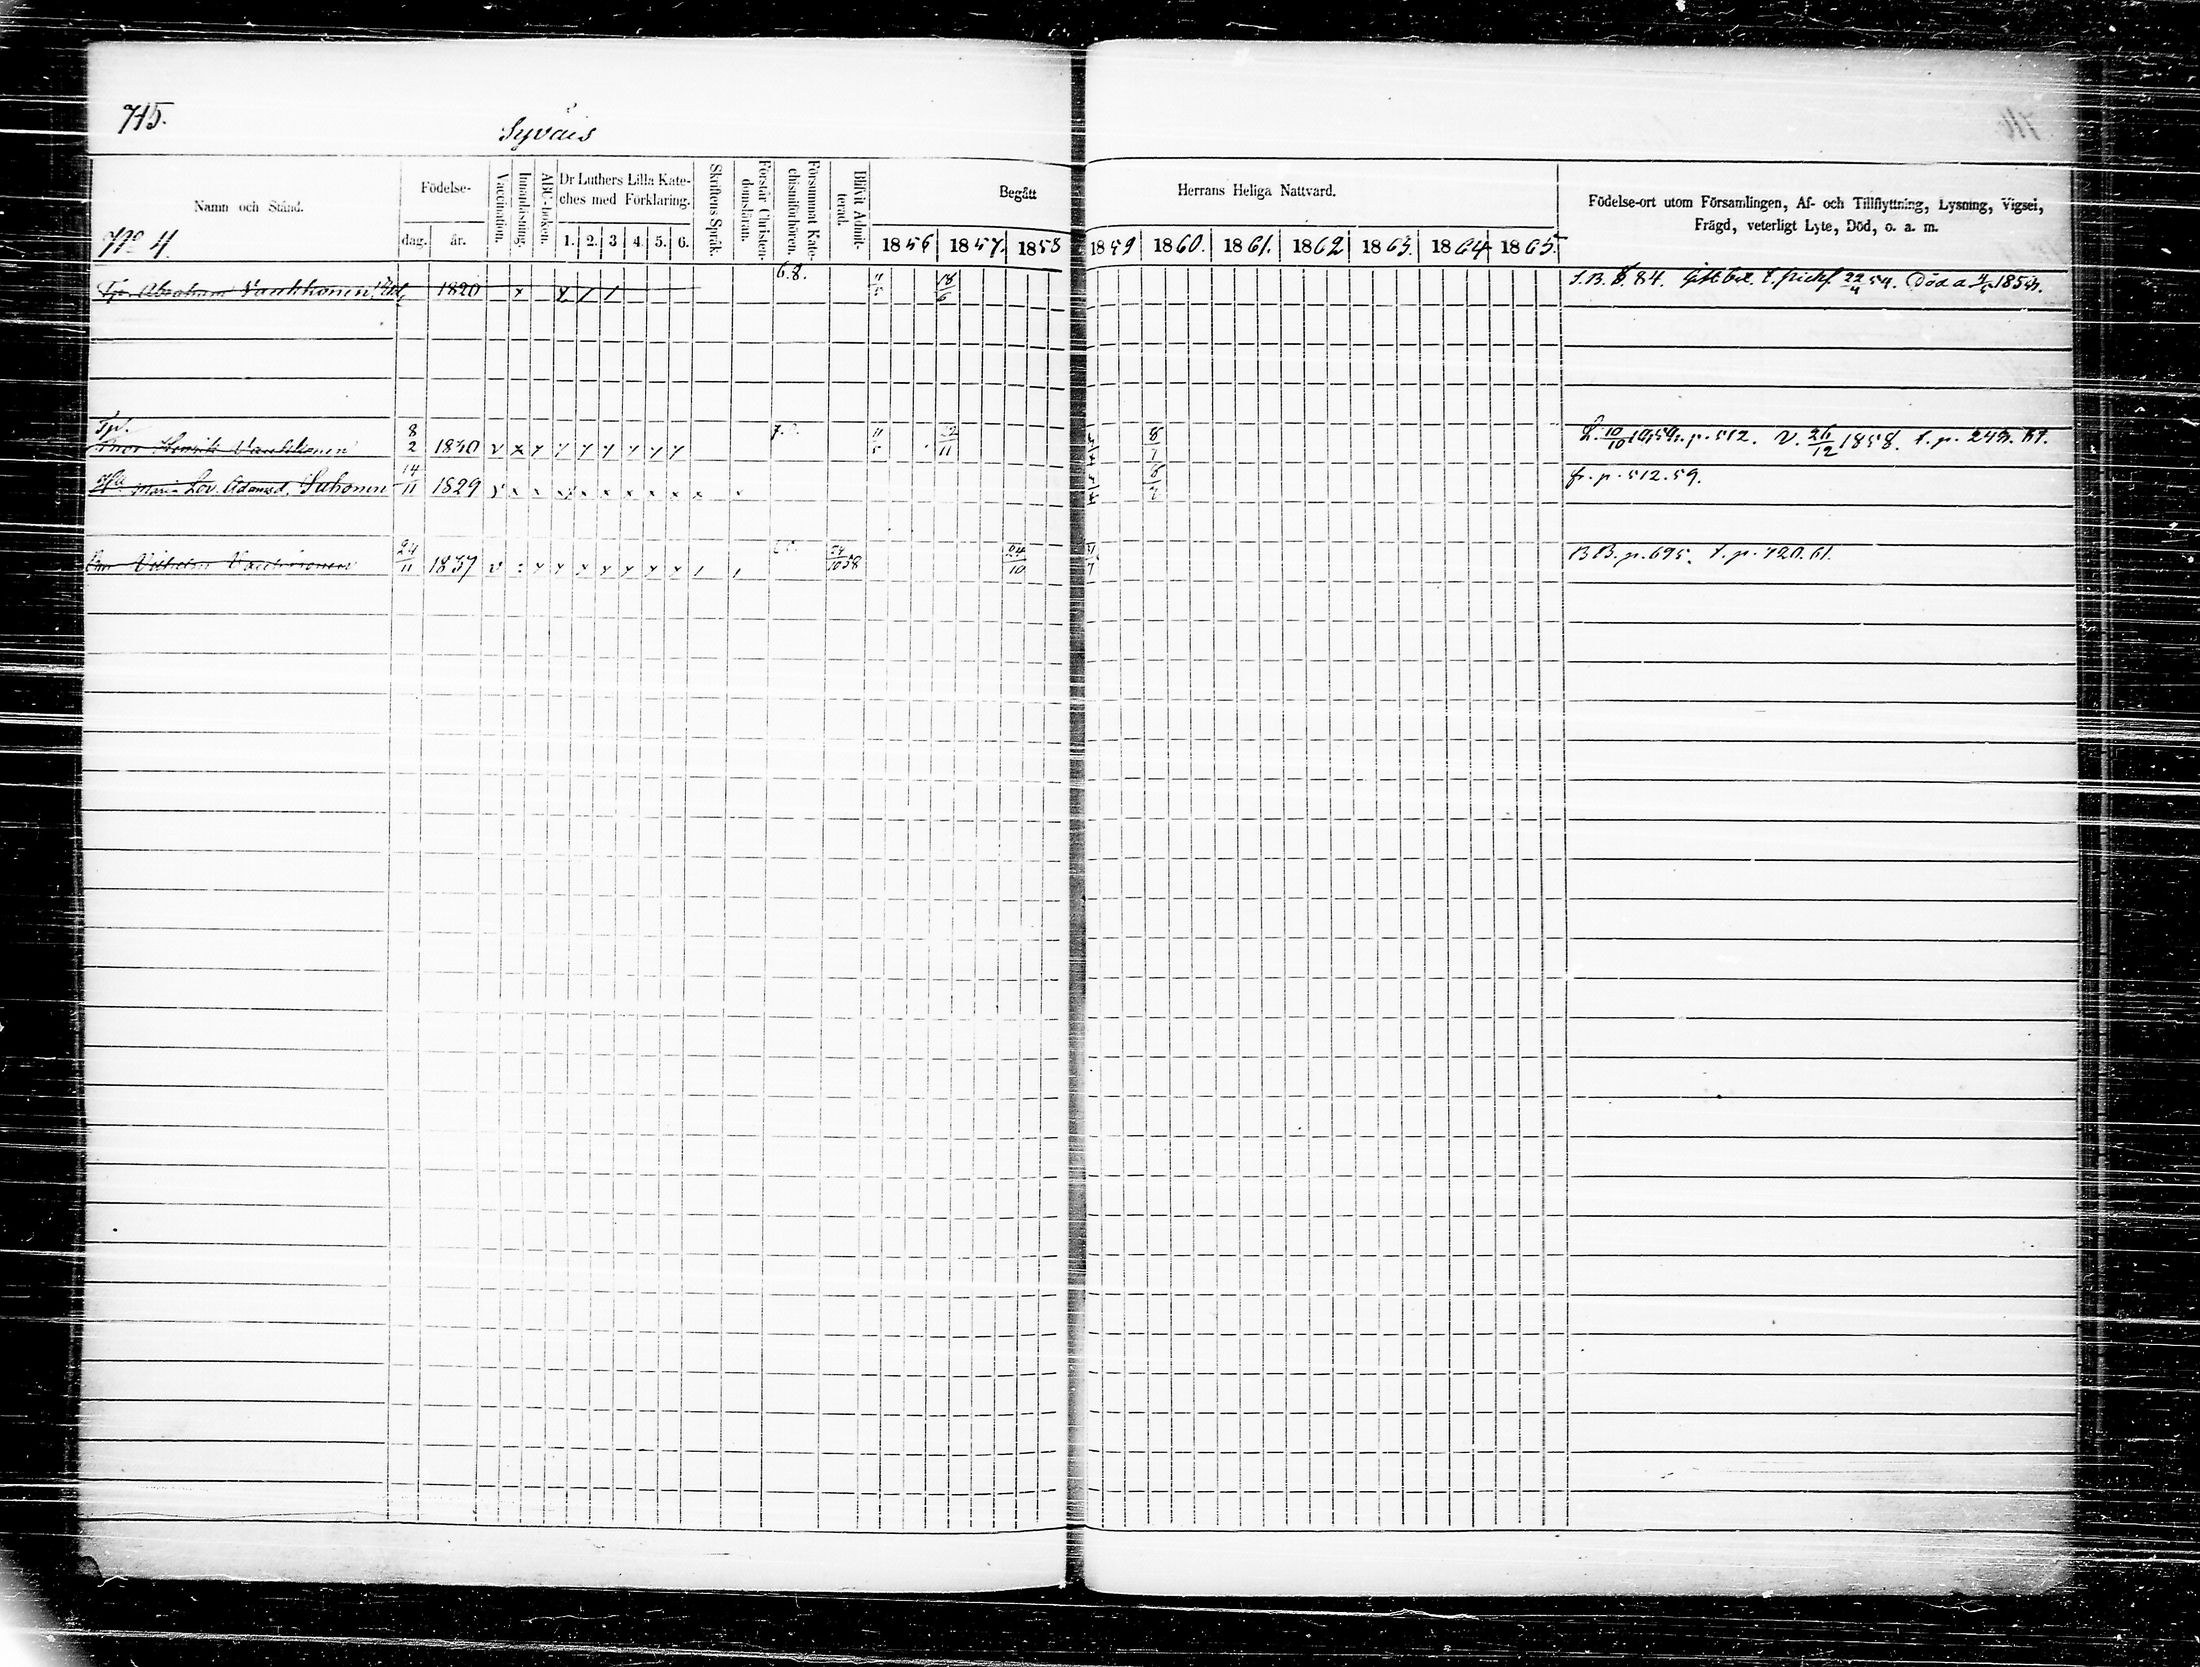 715.
Syväis
Namn och Stånd.
No 4.
Födelse-
dag. år.
Vaccination.
Innanläsning.
ABC-boken.
Dr Luthers Lilla Kate-
ches med Förklaring.
1. 2. 3 4. 5. 6.
Skriftens Språk.
Förstår Christen-
domsläran.
Försummat Kate-
chismiförhören.
Blifvit Admit-
terad.
Begått
1856 1857. 1858
Herrans Heliga Nattvard.
1859 1860. 1861. 1862 1863. 1864 1865.
Födelse-ort utom Församlingen, Af- och Tillflyttning, Lysning, Vigsel,
Frägd, veterligt Lyte, Död, o. a. m.
Tjr Abraham Vauhkonen 1820 x 6.8. 11/5 18/6 84. 22/4 54. Död a 4/5 185
Tjr.
Bror Henrik Vauhkonen 8/2 1830 11/5 22/11 8/7 L. 10/10 p. 512. V. 26/12 1858. t. p. 243.
Maria Lov. Adamsd. Suhonen 14/11 1829 x x x x x x x x 8/7 fr. p. 512. 59.
Vilhelm Vauhkonen 24/11 1837 24/10 58 24/10 B B. p. 695. t. p. 720. 61.